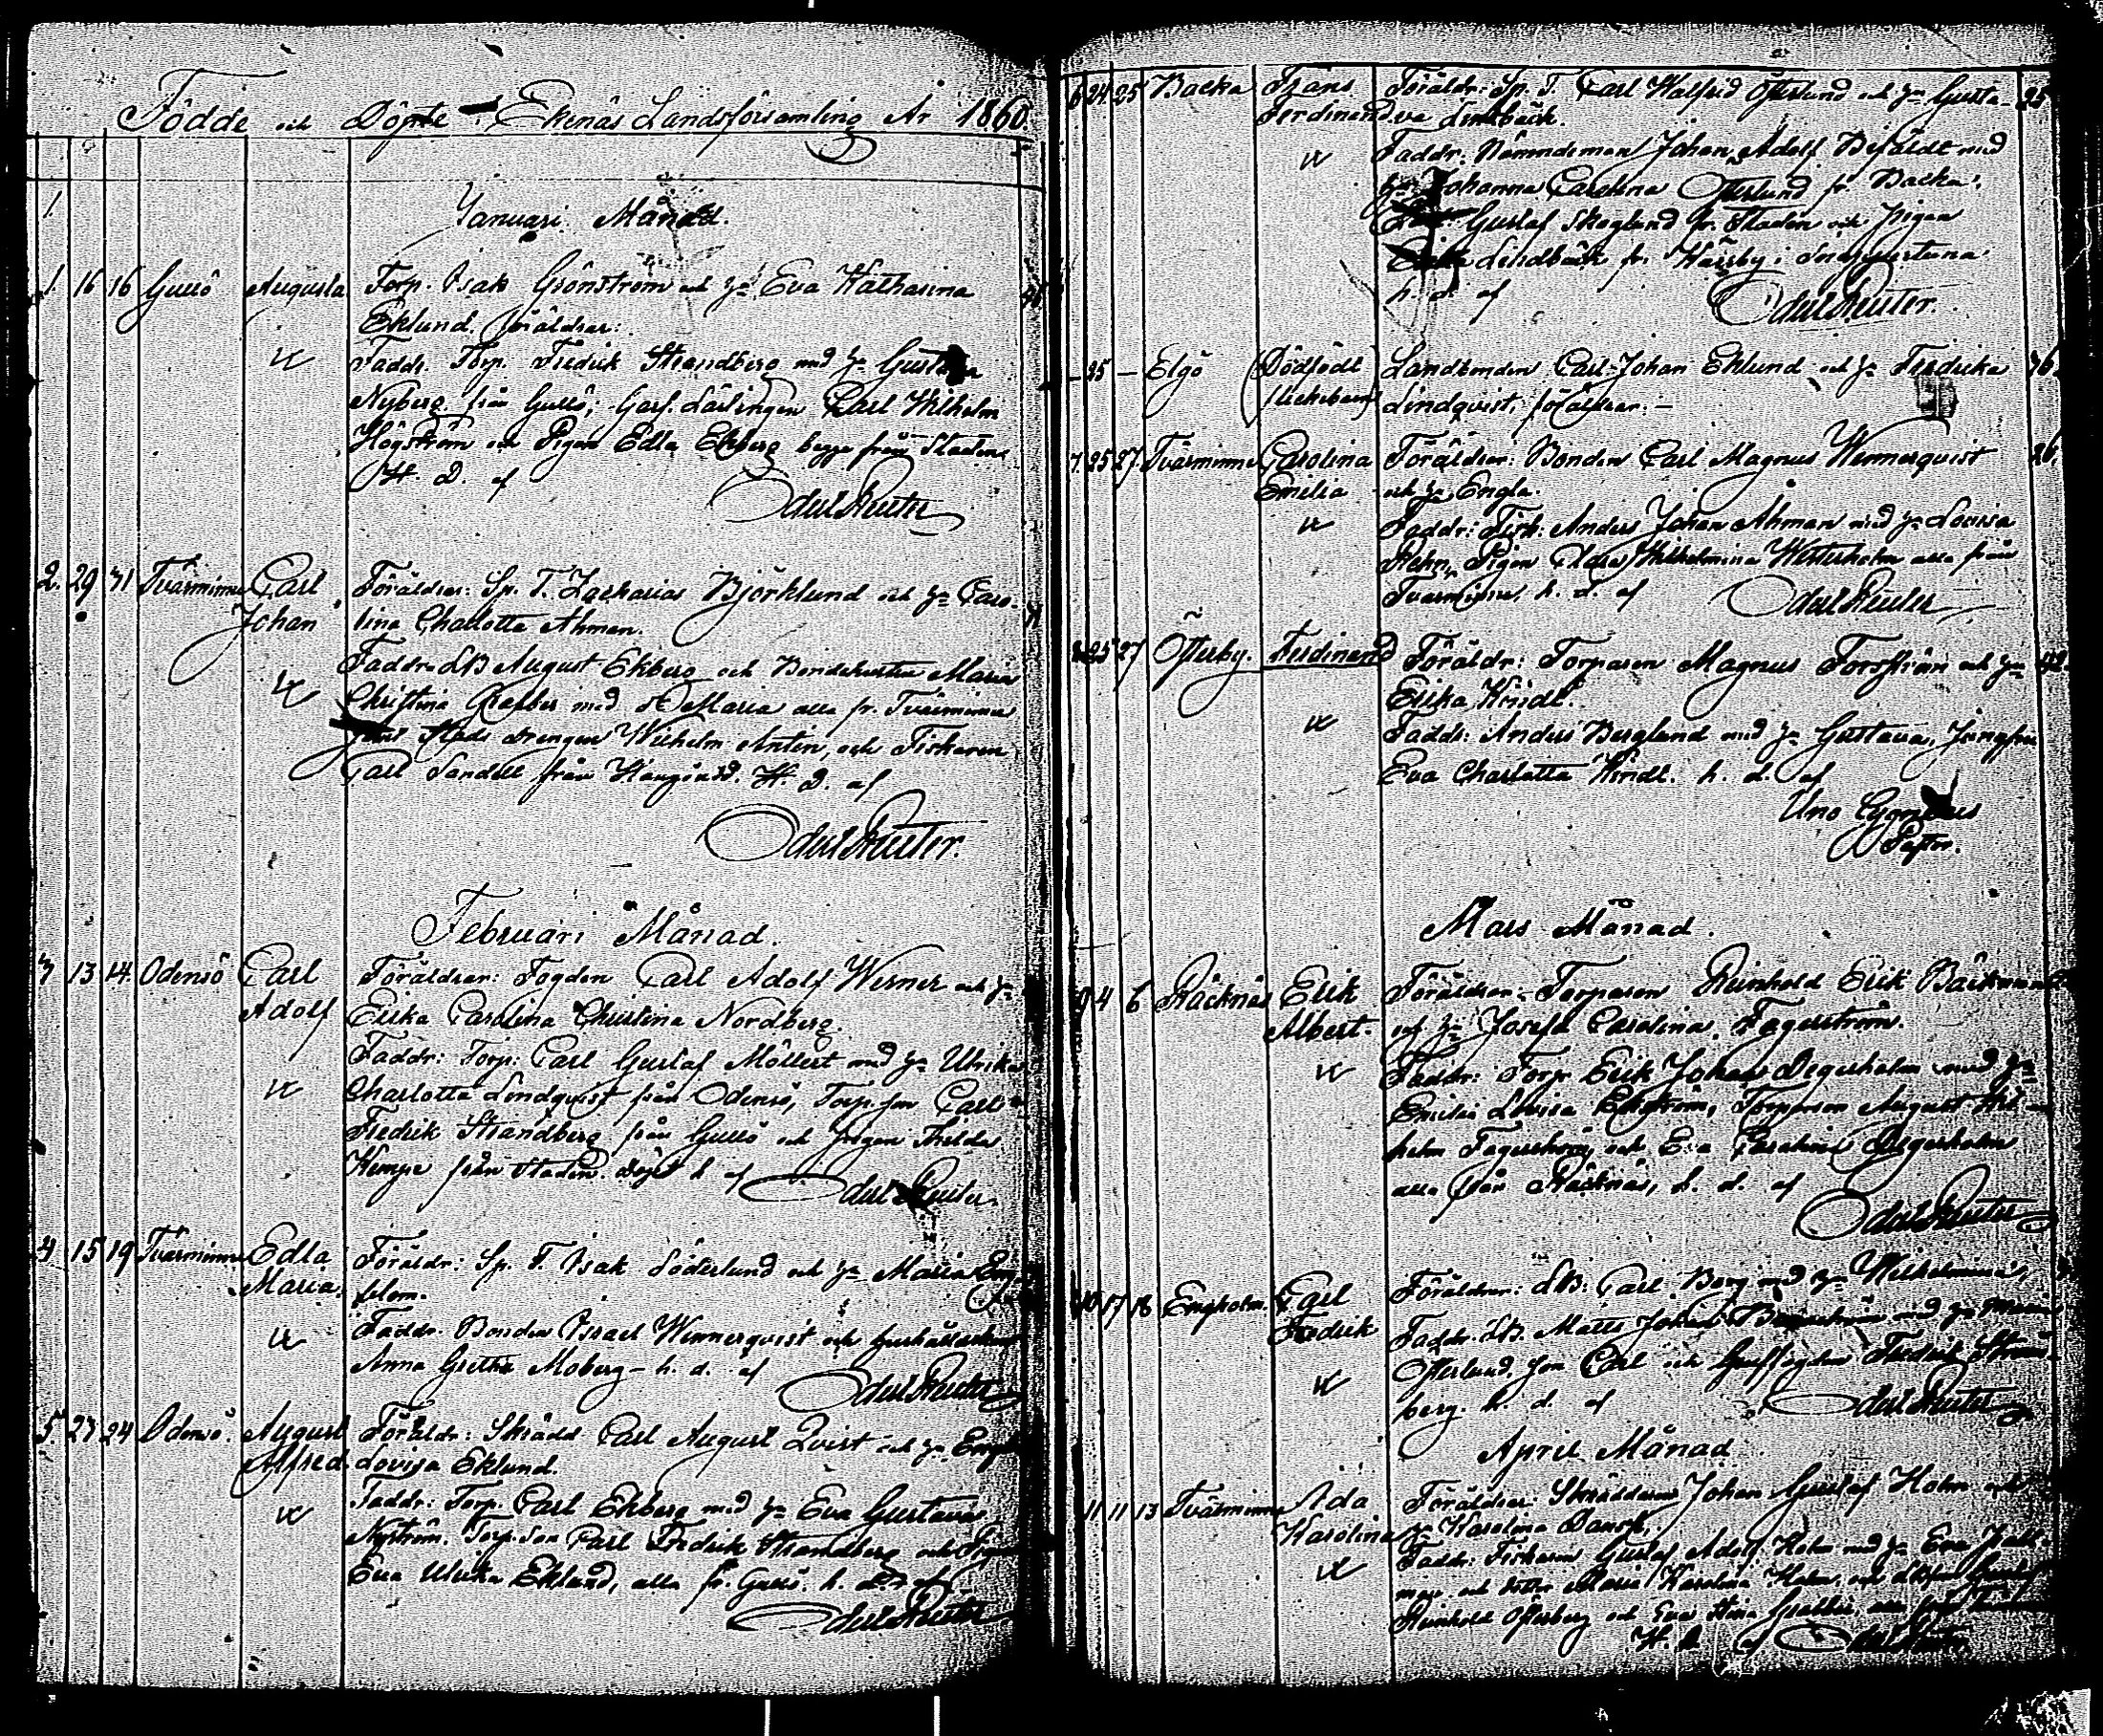 Födde och Döpte i Ekenäs Landsförsamling År 1860.
1.
Januari Månad.
1. 16 16 Gullö Augusta Torp. Isak Grönström och h:u Eva Katharina
Eklund, föräldrar:
Faddr. Torp. Fredrik Strandberg med h:u Gustava
Nyberg från Gullö, Garf. Lärlingen Carl Wilhelm
Högström och Pigan Edla Ekberg begge från Staden.
H. D. af
Odert Reuter
2. 29 31 Tvärminne Carl Föräldrar: Sp. T. Zacharias Björklund och h:u Caro-
Johan lina Charlotta Åhman.
Faddr. LB August Ekberg och Bondehustru Maria
Christina med D. Maria alla fr. Tvärminne
drengen Wilhelm Antin, och Fiskaren
Carl Sandell från Hangöudd. H. D. af
Odert Reuter.
Februari Månad.
3 13 14. Odensö Carl Föräldrar: Fogden Carl Adolf Werner och h:u
Adolf Erika Carolina Christina Nordberg.
Faddr: Torp: Carl Gustaf Möllert med h:u Ulrika
Charlotta Lindqvist från Odensö, Torp. son Carl
Fredrik Strandberg från Gullö och pigan Hilda
Kempe från Staden. Döpt h. af Odert Reuter.
4 15 19 Tvärminne Edla Föräldr: Sp. T. Isak Söderlund och h:u Maria
Maria. blom.
Faddr. Bonden Israel Wennerqvist och
Anna Gretha Moberg – h. d. af
Odert Reuter
5 23 24 Odensö. August Föräldr: Skrädd Carl August Qvist och h:u
Alfred Lovisa Eklund.
Faddr: Torp. Carl Ekberg med h:u Eva Gustava
Nyström. Torp. son Carl Fredrik Strandberg och Pigan
Eva Ulrika Eklund, alla fr. Gullö. h. d. af
Odert Reuter
6 24 25 Backa Frans Föräldr: Sp. T. Carl Walfrid Österlund och h:u Gusta- 25
Ferdinand va Lindbäck.
Faddr. Nämndeman Johan Adolf Bifäldt med
h:u Johanna Carolina Österlund fr. Backa,
Gustaf Skoglund fr. Staden och pigan
Lindbäck fr. Wärby i
h. d. af Odert Reuter.
– 25 – Elgö (Dödfödt Landbonden Carl Johan Eklund och h:u Fredrika 36.
flickebarn) Lindqvist, föräldrar. –
7. 25 27 Tvärminne Carolina Föräldrar: Bonden Carl Magnus Wennerqvist 26.
Emilia och h:u Engla.
Faddr: Fisk: Anders Johan Åhman med h:u Lovisa
Rehn, Pigan Clara Wilhelmina Westerholm alla från
Tvärminne, h. d. af Odert Reuter
8. 25 27 Österby. Ferdinand Föräldr: Torparen Magnus Forsström och h:u
Erika Windt.
Faddr: Anders Berglund med h:u Gustava, Jungfru
Eva Charlotta Windt. h. d. af
Uno Cygnæus
Pastor.
Mars Månad.
9 4 6 Räcknäs Erik Föräldrar: Torparen Reinhold Erik Bäckman
Albert. och h:u Josefa Carolina Fagerström.
Faddr: Torp Erik Johan Degerholm med h:u
Emilia Lovisa Ekström, Torparson August Wil-
helm Fagerström, och Eva Carolina Degerholm
alla från Räcknäs, h. d. af
Odert Reuter
10 17 18 Engholm. Carl Föräldrar: LB: Carl Berg med h:u Wilhelmina,
Fredrik Faddr: LB. Matts Johan med h:u Maria
Österlund, son Carl och Fredrik Ström-
berg. h. d. af Odert Reuter
April Månad
11 11 13 Tvärminne Ada Föräldrar: Skräddaren Johan Gustaf Holm och
Karolina h:u Karolina Dansk.
Faddr: Fiskaren Gustaf Adolf Holm med h:u Eva
och dotter Maria Karolina Holm, och
Reinhold Österberg och Eva Stina
H. D. af Odert Reuter